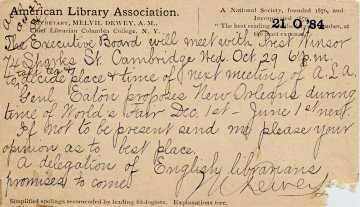 American Library Association.
SECRETARY, MELVIL DEWEY, A.M.,
Chief Librarian Columbia College, N. Y.
A National Society, founded 1876, and
"The best reading for the
at the least expense."
21 O '84
The Executive Board will meet with Prest Winsor
74 Sparks St. Cambridge Wed Oct 29 6 p.m.
to take tea &
decide place & time of next meeting of A L A
Genl. Eaton proposes New Orleans during
time of World's Fair Dec. 1st - June 1st next.
If not to be present send me please your
opinion as to best place.
A delegation of English librarians
promises to come
Simplified spelings recomended by leading filologists. Explanations free.